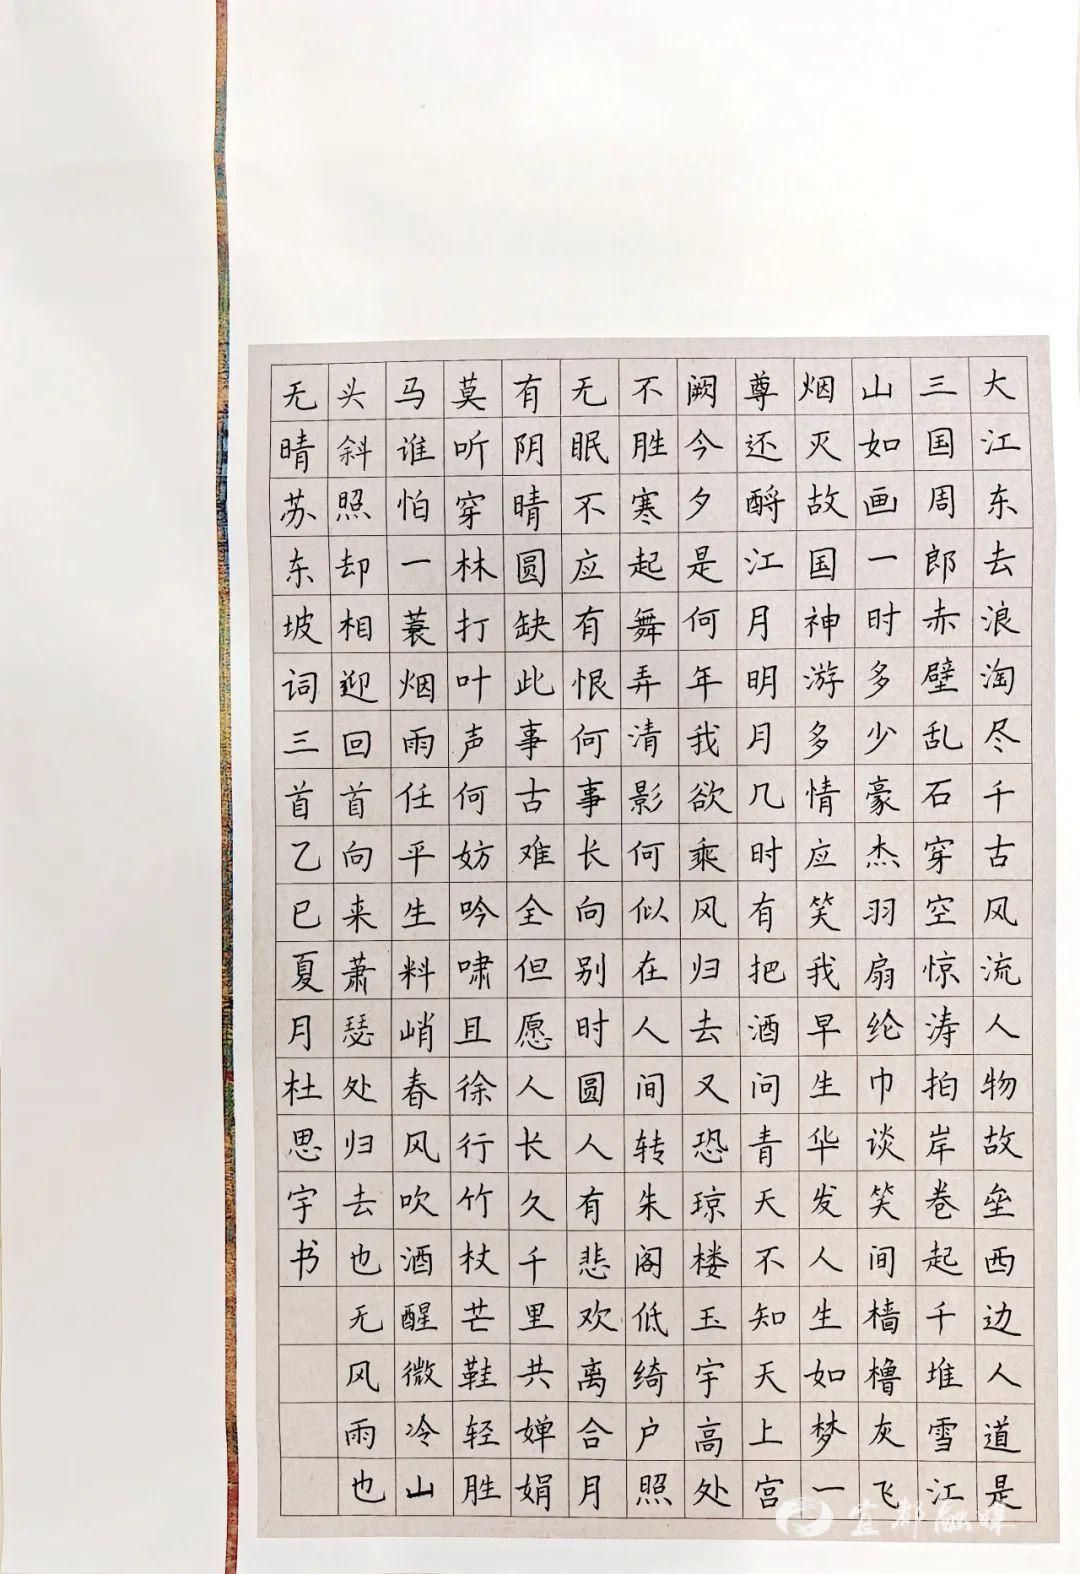 大江东去浪淘尽千古风流人物故垒西边人道是
三国周郎赤壁乱石穿空惊涛拍岸卷起千堆雪江
山如画一时多少豪杰羽扇纶巾谈笑间樯橹灰飞
烟灭故国神游多情应笑我早生华发人生如梦一
尊还酹江月明月几时有把酒问青天不知天上宫
阙今夕是何年我欲乘风归去又恐琼楼玉宇高处
不胜寒起舞弄清影何似在人间转朱阁低绮户照
无眠不应有恨何事长向别时圆人有悲欢离合月
有阴晴圆缺此事古难全但愿人长久千里共婵娟
莫听穿林打叶声何妨吟啸且徐行竹杖芒鞋轻胜
马谁怕一蓑烟雨任平生料峭春风吹酒醒微冷山
头斜照却相迎回首向来萧瑟处归去也无风雨也
无晴苏东坡词三首乙巳夏月杜思宇书
宜都融媒